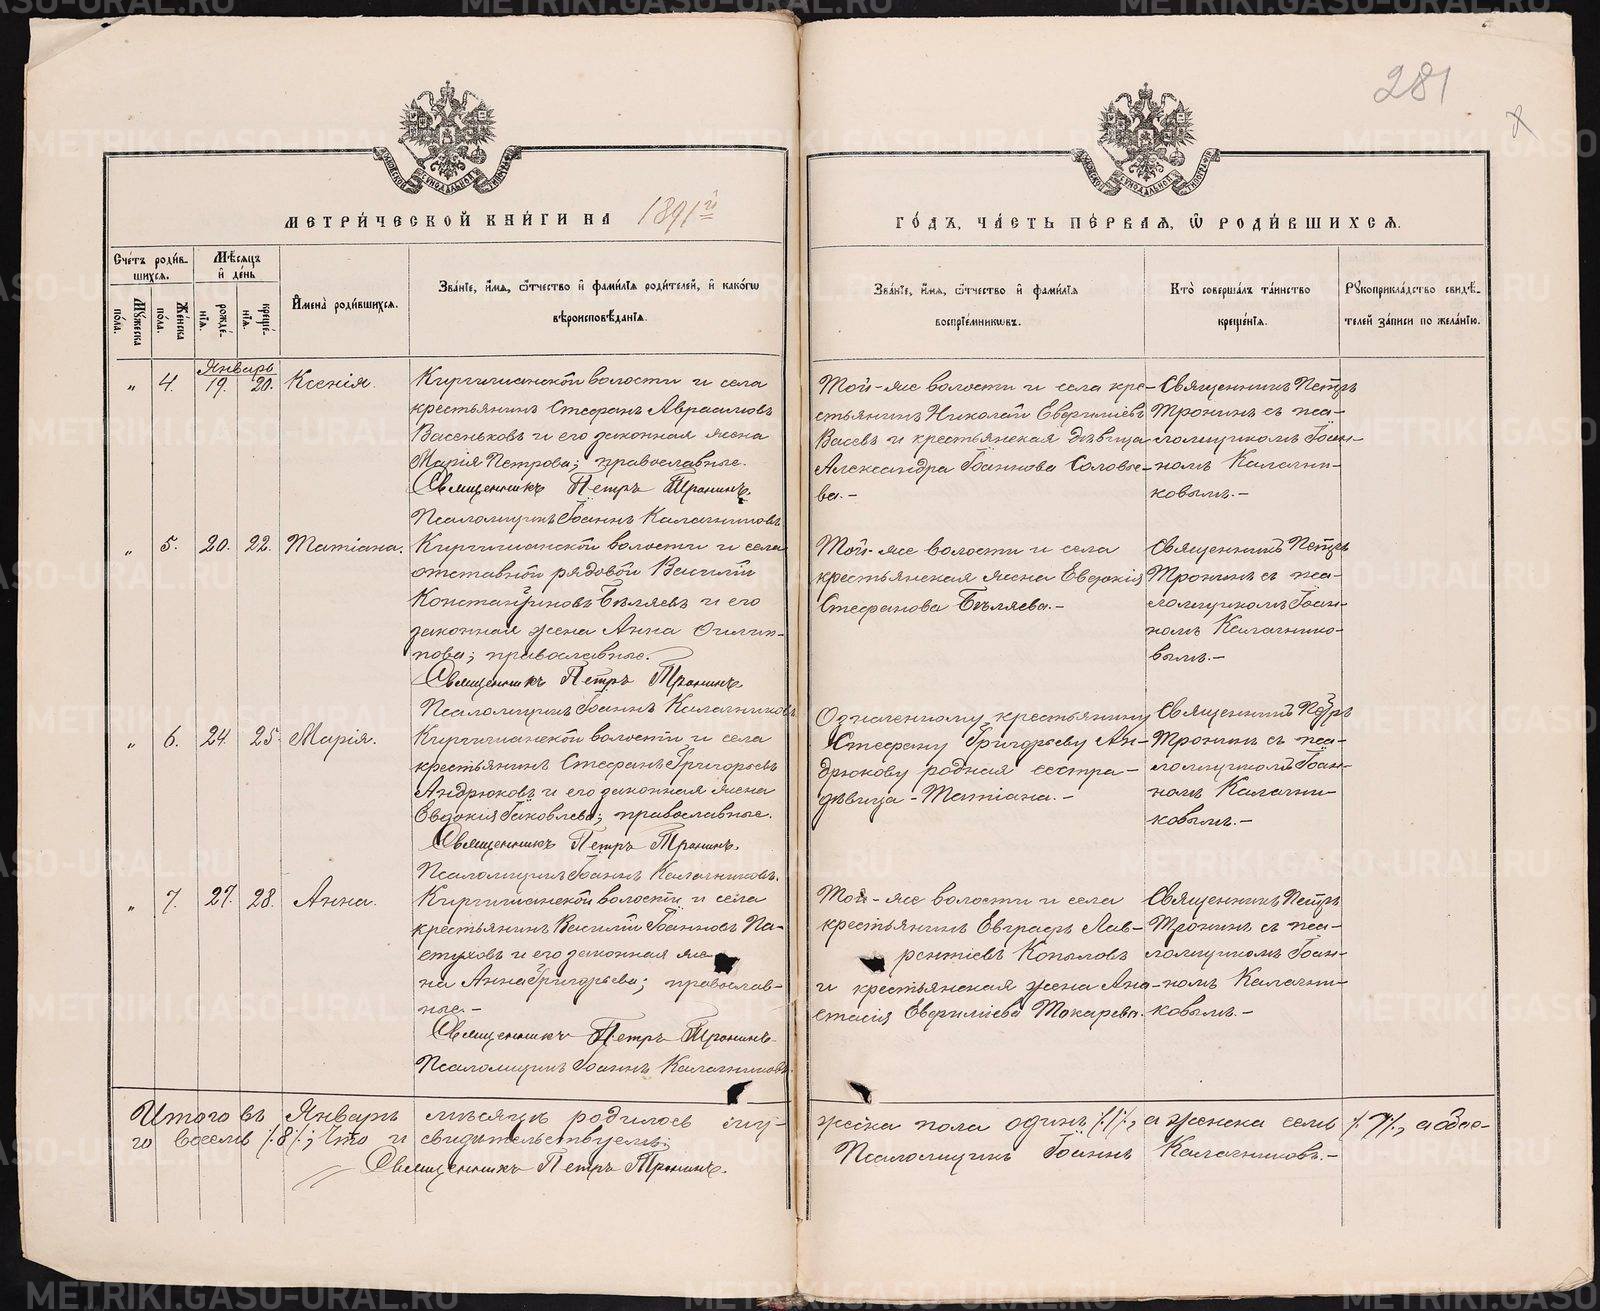 281
МЕТРИ́ЧЕСКОЙ КНИ́ГИ НА 1891 й
ГО́ДЪ, ЧА́СТЬ ПЕ́РВАѦ, Ѡ҆ РОДИ́ВШИХСѦ.
Сче́тъ роди́в-
шихсѧ.
Мꙋ́жеска
по́ла.
Же́нска
по́ла.
Мѣ́сѧцъ
и҆ де́нь
рожде́-
нїѧ.
креще́-
нїѧ.
И҆мена̀ роди́вшихсѧ.
Зва́нїе, и҆́мѧ, ѻ҆́тчество и҆ фами́лїѧ роди́телей, и҆ како́гѡ
вѣроисповѣ́данїѧ.
Зва́нїе, и҆́мѧ, ѻ҆́тчество и҆ фами́лїѧ
воспрїе́мникѡвъ.
Кто̀ соверша́лъ та́инство
креще́нїѧ.
Рꙋкоприкла́дство свидѣ́-
телей за́писи по жела́нїю.
Январь
„ 4. 19. 20. Ксенія.
Киргишанской волости и села
крестьянинъ Стефанъ Авраамовъ
Васеньковъ и его законная жена
Марія Петрова; православные.
Священникъ Петръ Тронинъ.
Псаломщикъ Іоаннъ Калачниковъ.
Той-же волости и села кре-
стьянинъ Николай Евфиміевъ
Васевъ и крестьянская дѣвица
Александра Іоаннова Соловье-
ва.-
Священникъ Петръ
Тронинъ съ пса-
ломщикомъ Іоан-
номъ Калачни-
ковымъ.-
„ 5. 20. 22. Татіана.
Киргишанской волости и села
отставной рядовой Василій
Константиновъ Бѣляевъ и его
законная жена Анна Филип-
пова; православные.
Священникъ Петръ Тронинъ
Псаломщикъ Іоаннъ Калачниковъ
Той-же волости и села
крестьянская жена Евдокія
Стефанова Бѣляева.-
Священникъ Петръ
Тронинъ съ пса-
ломщикомъ Іоан-
номъ Калачнико-
вымъ.-
„ 6. 24. 25. Марія.
Киргишанской волости и села
крестьянинъ Стефанъ Григорьевъ
Андрюковъ и его законная жена
Евдокія Іаковлева; православные.
Священникъ Петръ Тронинъ.
Псаломщикъ Іоаннъ Калачниковъ.
Означенному крестьянину
Стефану Григорьеву Ан-
дрюкову родная сестра-
дѣвица-Татіана.-
Священникъ Петръ
Тронинъ съ пса-
ломщикомъ Іоан-
номъ Калачни-
ковымъ.-
„ 7. 27. 28. Анна.
Киргишанской волости и села
крестьянинъ Василій Іоанновъ Па-
стуховъ и его законная же-
на Анна Григорьева; православ-
ные.-
Священникъ Петръ Тронинъ
Псаломщикъ Іоаннъ Калачниковъ.
Той-же волости и села
крестьянинъ Евграфъ Лав-
рентіевъ Копыловъ
и крестьянская жена Ана-
стасія Евфиміева Токарева.
Священникъ Петръ
Тронинъ съ пса-
ломщикомъ Іоан-
номъ Калачни-
ковымъ.-
Итого въ Январѣ мѣсяцѣ родилось му-
жеска пола одинъ /:1:/, а женска семь /:7:/, а обое-
го восемь /:8:/; что и свидѣтельствуемъ:
Священникъ Петръ Тронинъ.
Псаломщикъ Іоаннъ Калачниковъ.-
METRIKI.GASO-URAL.RU